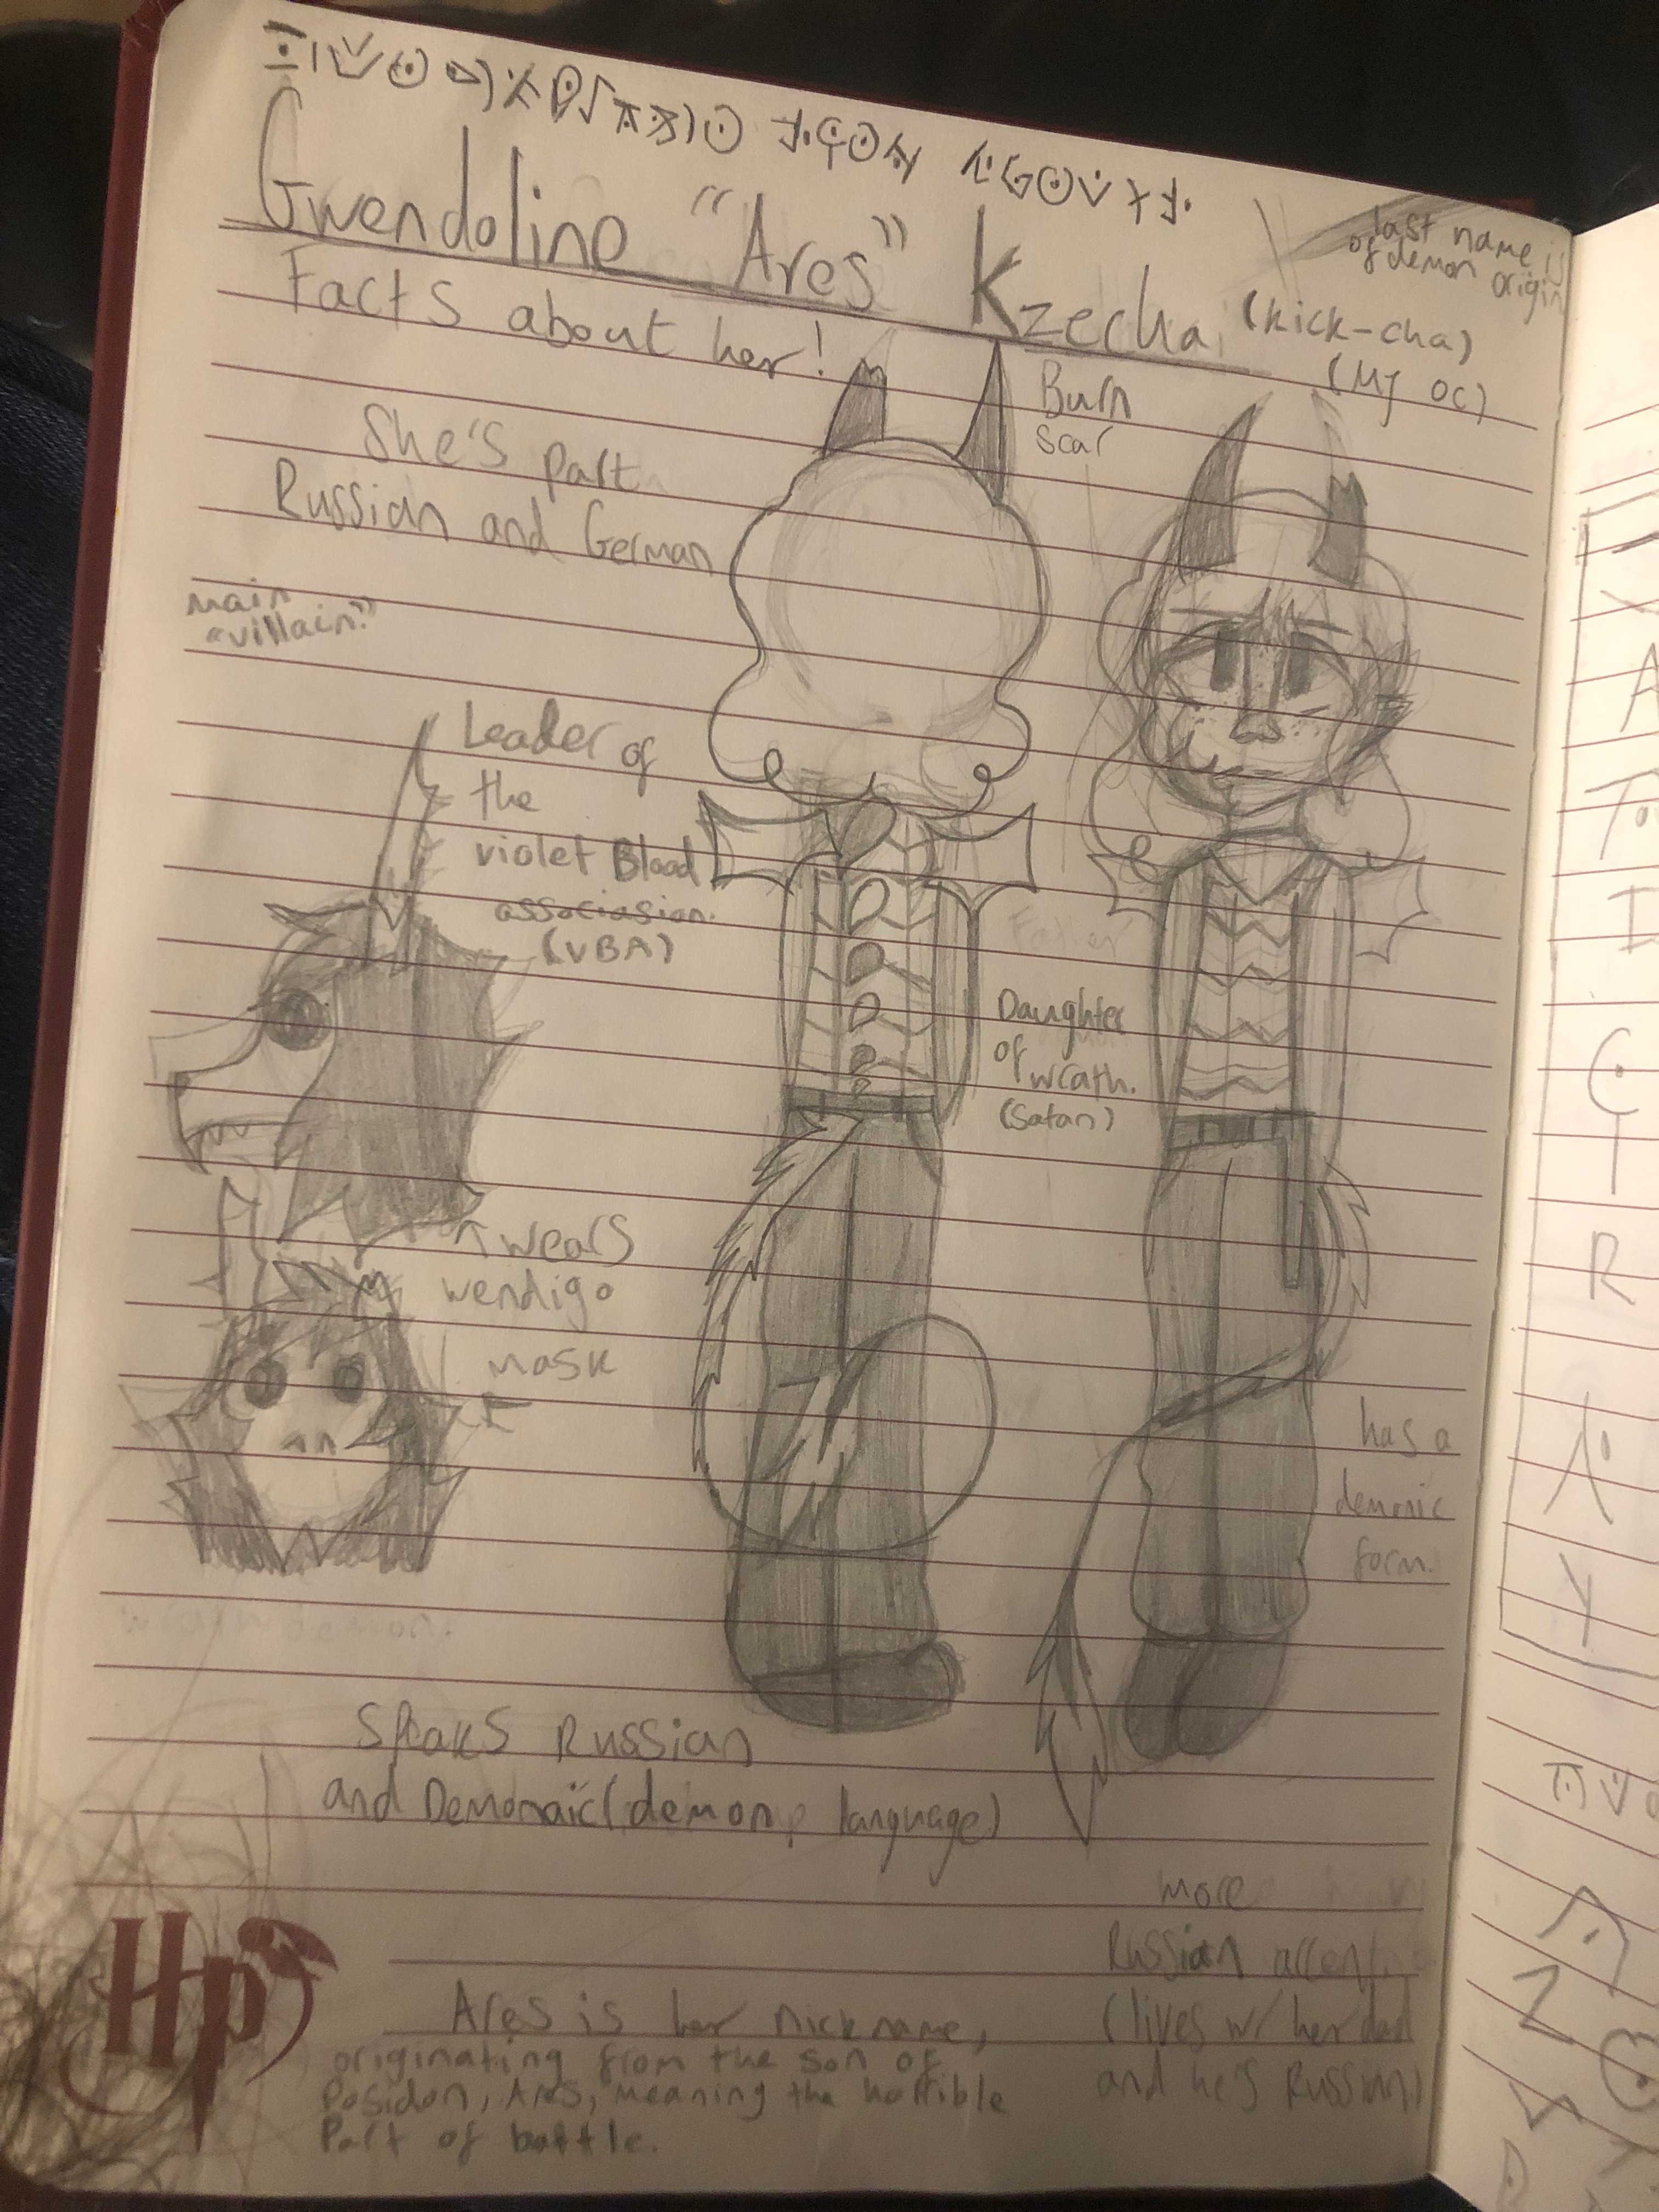 Gwendoline "Ares" Kzecha (kick-cha)
last name is
of demon origin
(My OC)
Facts about her!
Burn
scar
She's part
Russian and German
main
"villain"
Leader of
the
violet Blood
associasian.
(VBA)
Father
Daughter
of wrath.
(Satan)
↑ wears
wendigo
mask
has a
demonic
form.
wrath demon.
Speaks Russian
and Demonaic (demon language)
more
Russian accent
(lives w/ her dad
and he's Russian)
Ares is her nickname,
originating from the son of
Posidon, Ares, meaning the horrible
Part of battle.
HP